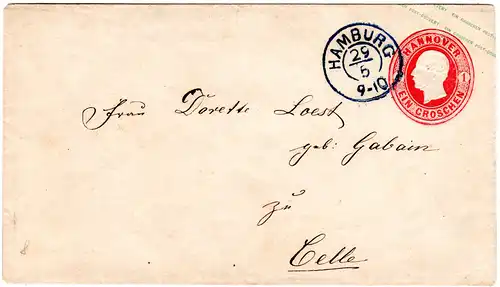 HANNOVER
1
EIN GROSCHEN
HAMBURG
29
5
9-10
Frau Dorette Loest
geb: Gabain
zu
Celle